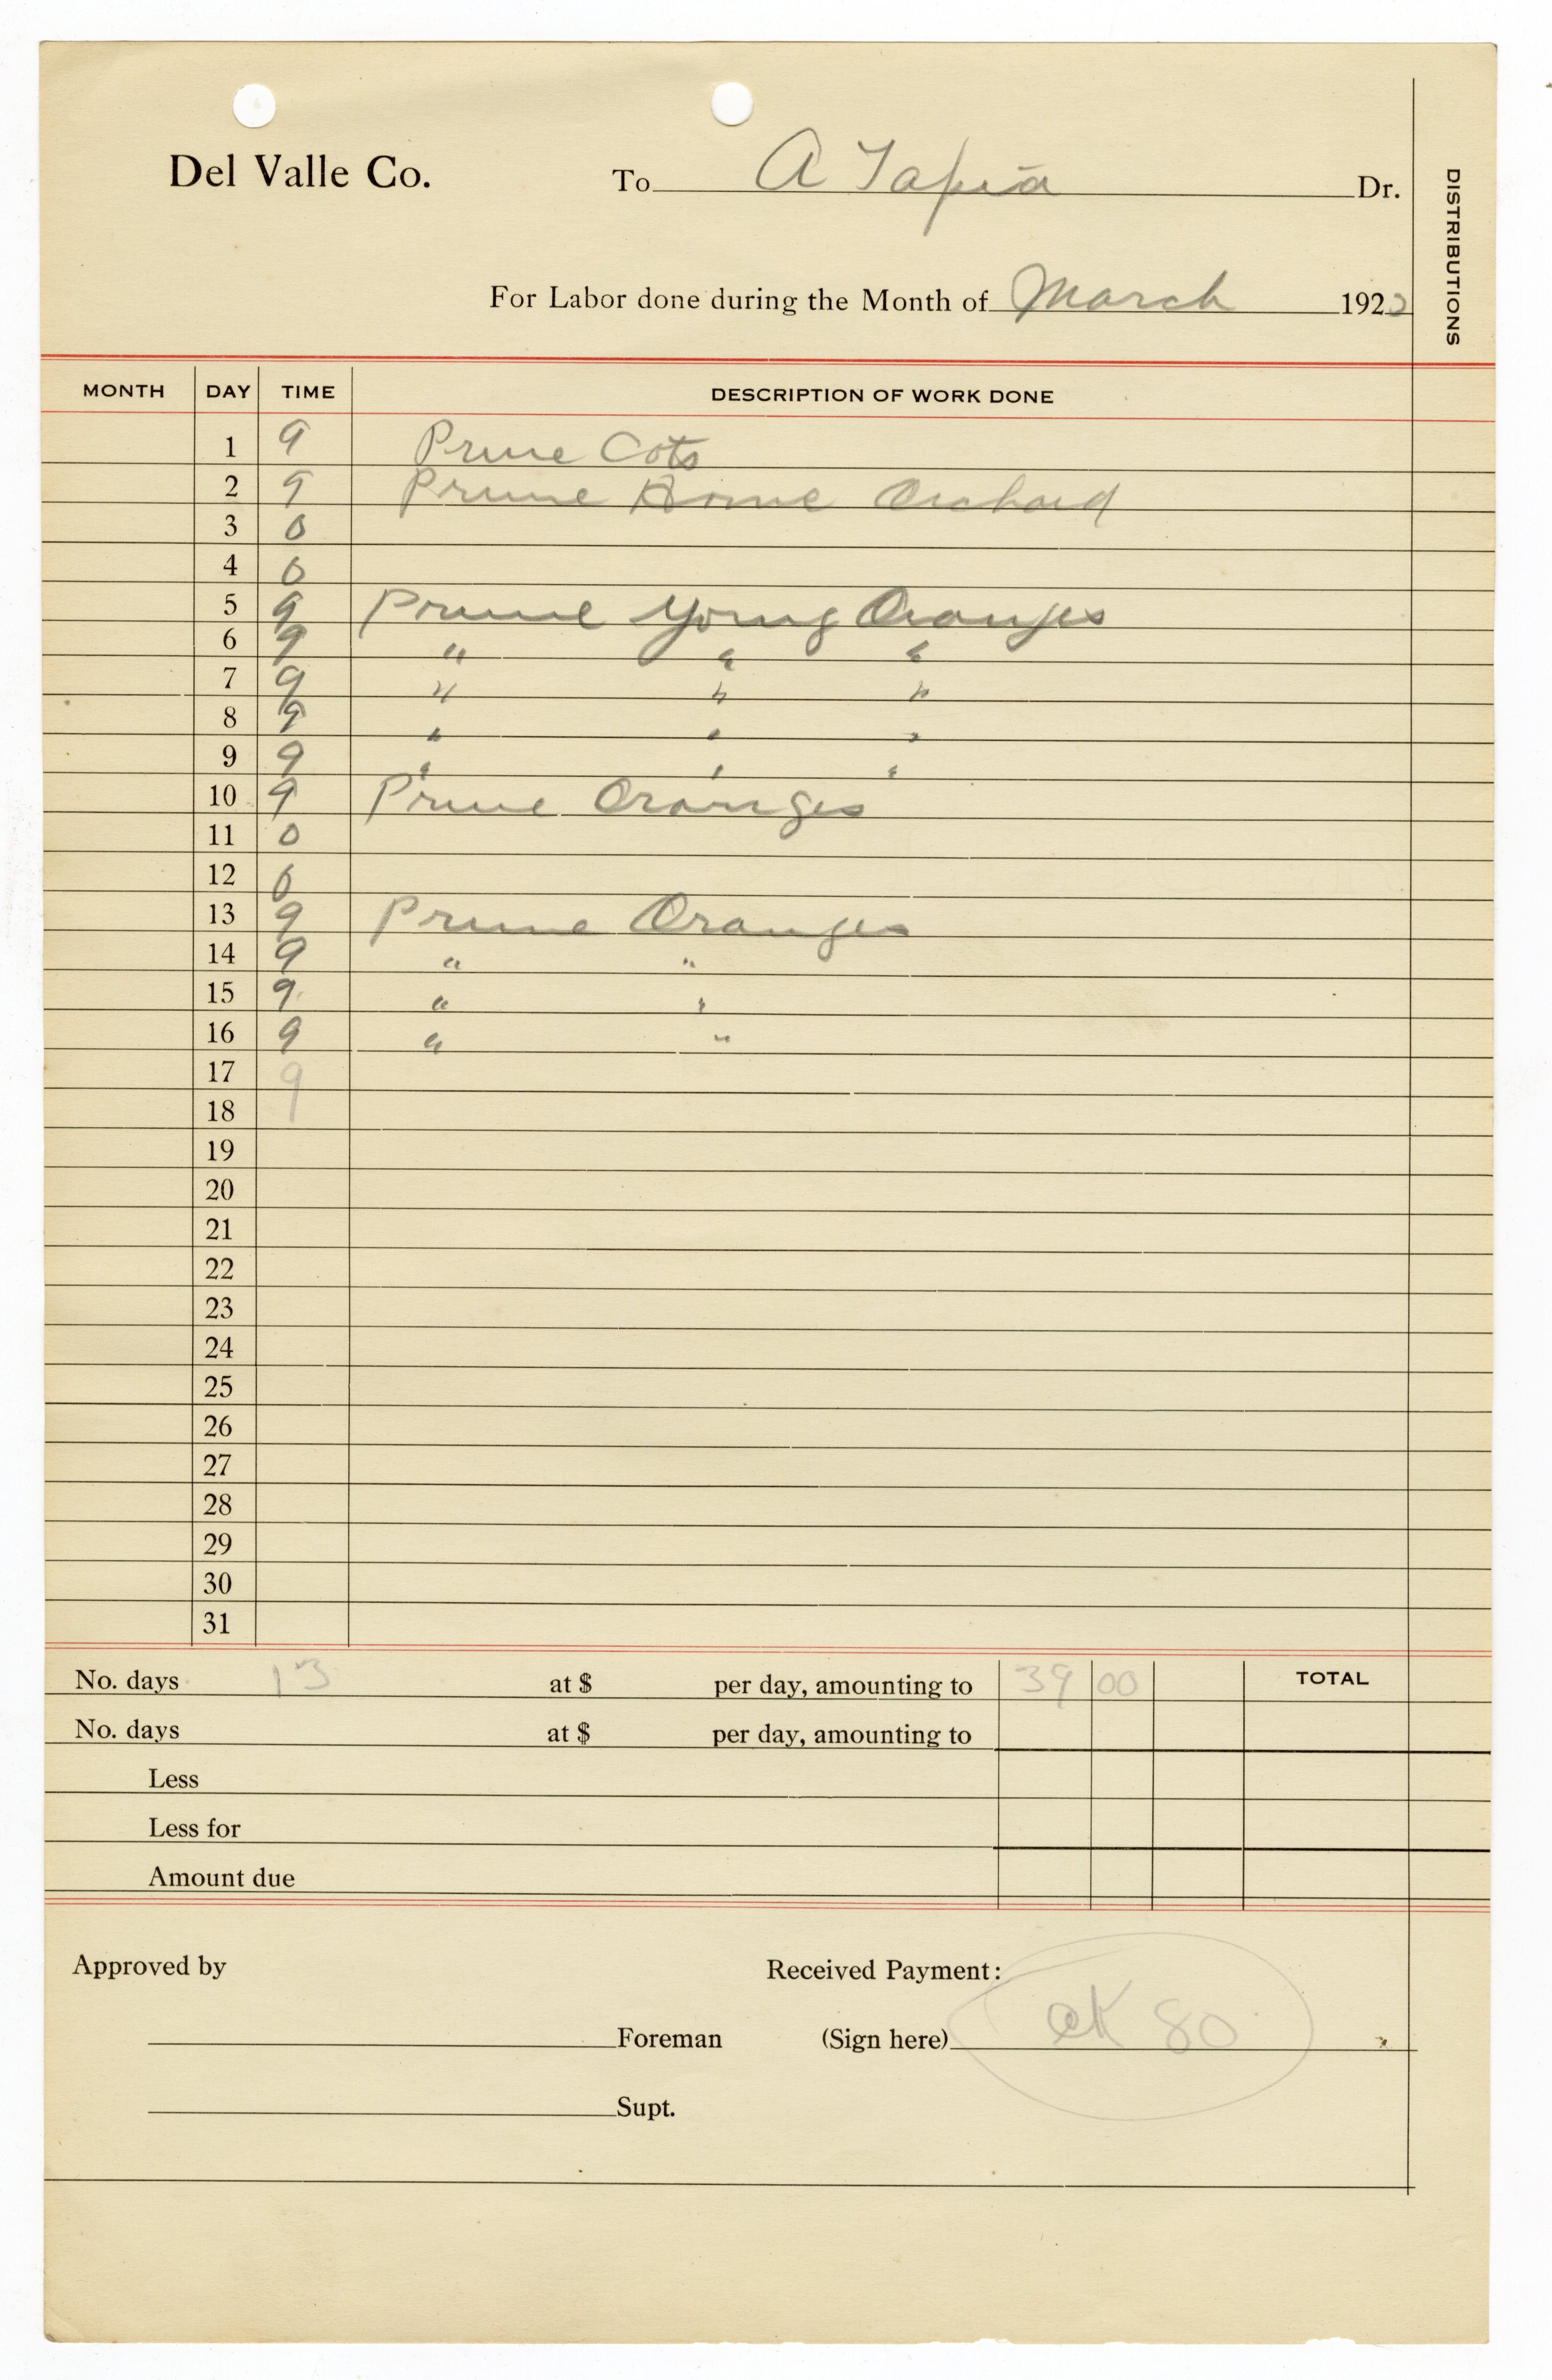 Del Valle Co. To A Tapia Dr.
For Labor done during the Month of March 1922
DISTRIBUTIONS
MONTH DAY TIME DESCRIPTION OF WORK DONE
1 9 Prune Cots
2 9 Prune Home Orchard
3 0
4 0
5 9 Prune Young Oranges
6 9 " " "
7 9 " " "
8 9 " " "
9 9 " " "
10 9 Prune Oranges
11 0
12 0
13 9 Prune Oranges
14 9 " "
15 9 " "
16 9 " "
17 9
18
19
20
21
22
23
24
25
26
27
28
29
30
31
No. days 13 at $ per day, amounting to 39 00 TOTAL
No. days at $ per day, amounting to
Less
Less for
Amount due
Approved by Received Payment:
Foreman (Sign here) CK 80
Supt.